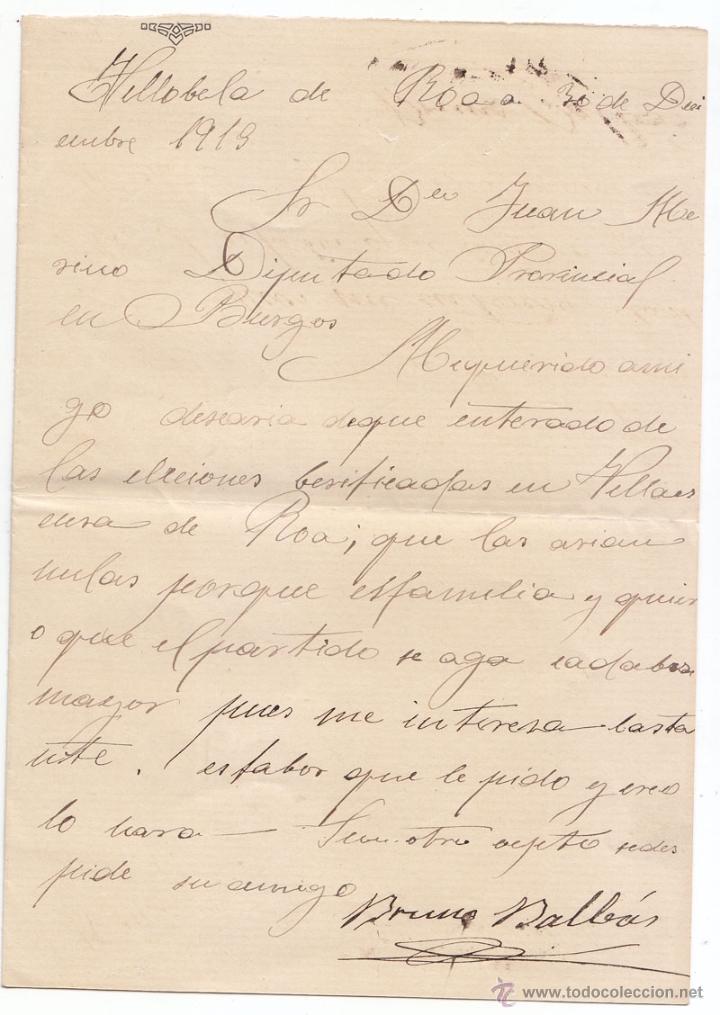 Villobela de Roa a 30 de Dici
embre 1913
Sr Dn Juan Me
rino Diputado Provincial
en Burgos
Mi querido ami
go desearia deque enterado de
las eleciones berificadas en Villaes
cusa de Roa; que las arian
nulas porque esfamilia y quier
o que el partido se aga cadabez
mayor pues me interesa basta
nte. esfabor que le pido y creo
lo hara — Sin otro ojeto sedes
pide su amigo
Bruno Balbás
www.todocoleccion.net